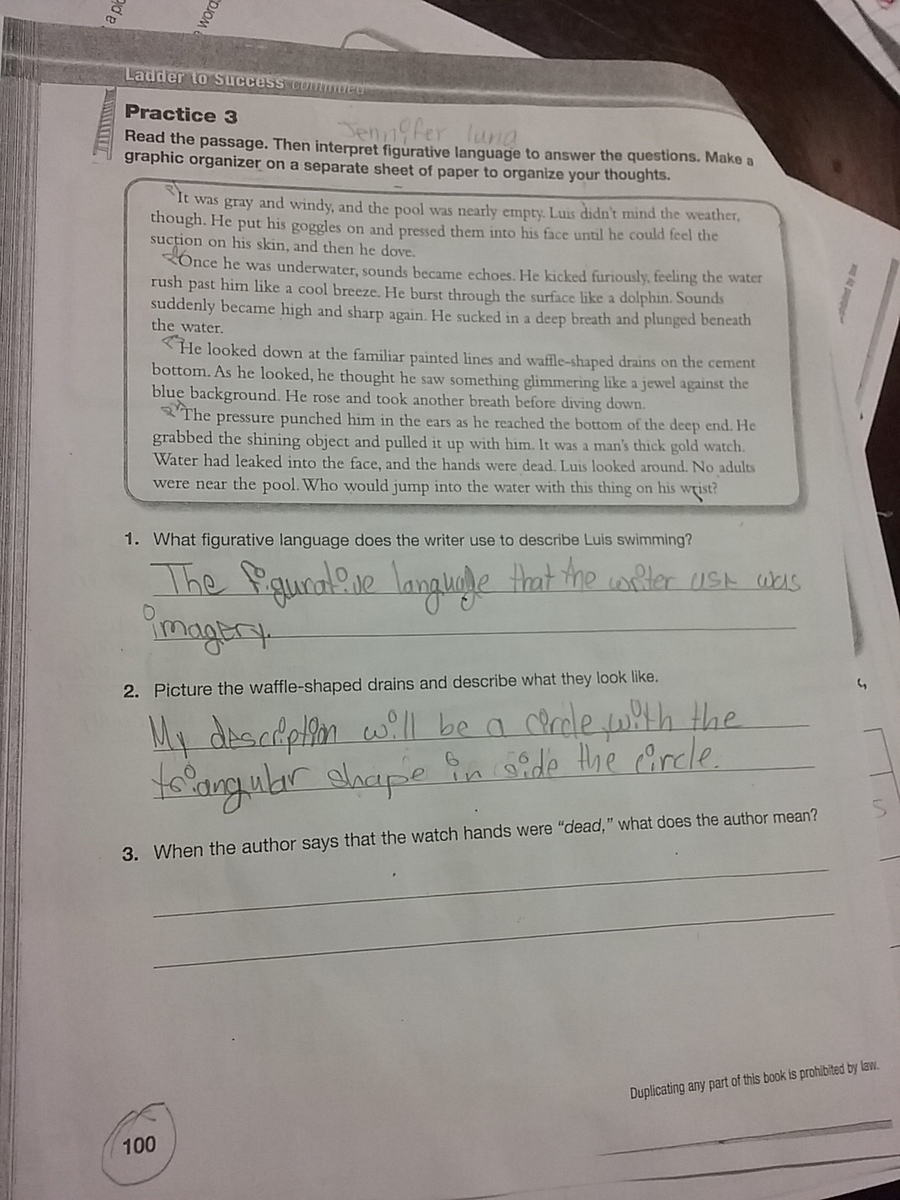 a pi
word
Ladder to Success continued
Practice 3
Jennifer luna
Read the passage. Then interpret figurative language to answer the questions. Make a
graphic organizer on a separate sheet of paper to organize your thoughts.
It was gray and windy, and the pool was nearly empty. Luis didn't mind the weather,
though. He put his goggles on and pressed them into his face until he could feel the
suction on his skin, and then he dove.
Once he was underwater, sounds became echoes. He kicked furiously, feeling the water
rush past him like a cool breeze. He burst through the surface like a dolphin. Sounds
suddenly became high and sharp again. He sucked in a deep breath and plunged beneath
the water.
He looked down at the familiar painted lines and waffle-shaped drains on the cement
bottom. As he looked, he thought he saw something glimmering like a jewel against the
blue background. He rose and took another breath before diving down.
The pressure punched him in the ears as he reached the bottom of the deep end. He
grabbed the shining object and pulled it up with him. It was a man's thick gold watch.
Water had leaked into the face, and the hands were dead. Luis looked around. No adults
were near the pool. Who would jump into the water with this thing on his wrist?
1. What figurative language does the writer use to describe Luis swimming?
The figurative language that the writer use was
imagery.
2. Picture the waffle-shaped drains and describe what they look like.
My description will be a circle, with the
triangular shape in side the circle.
3. When the author says that the watch hands were "dead," what does the author mean?
5
Duplicating any part of this book is prohibited by law.
100